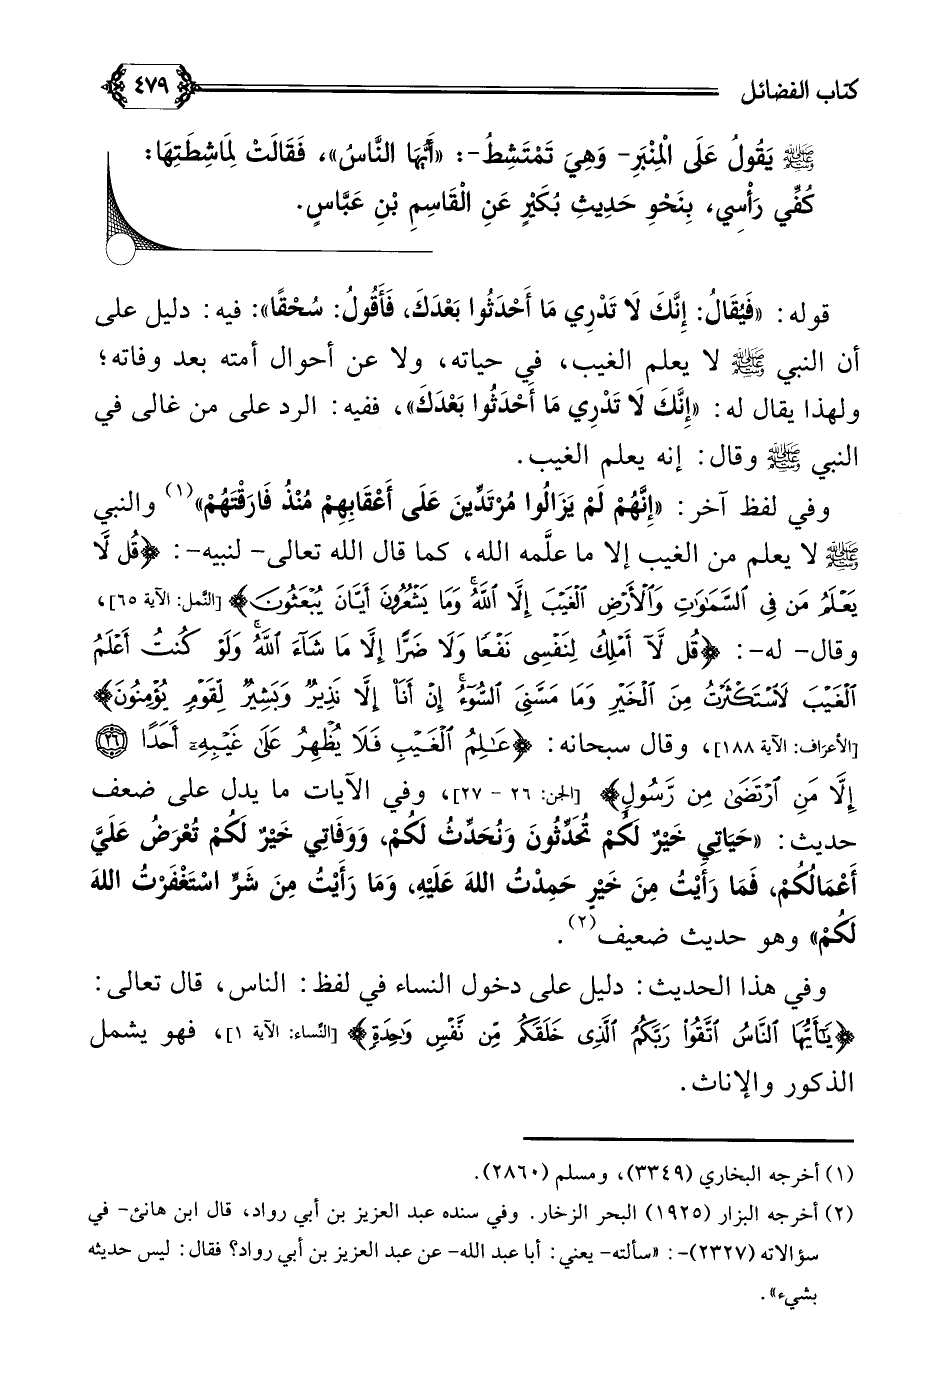 كتاب الفضائل ٤٧٩
ﷺ يَقُولُ عَلَى الْمِنْبَرِ- وَهِيَ تَمْتَشِطُ-: «أَيُّهَا النَّاسُ»، فَقَالَتْ لِمَاشِطَتِهَا:
كُفِّي رَأْسِي، بِنَحْوِ حَدِيثِ بُكَيْرٍ عَنِ الْقَاسِمِ بْنِ عَبَّاسٍ.
قوله: «فَيُقَالُ: إِنَّكَ لَا تَدْرِي مَا أَحْدَثُوا بَعْدَكَ، فَأَقُولُ: سُحْقًا»: فيه: دليل على
أن النبي ﷺ لا يعلم الغيب، في حياته، ولا عن أحوال أمته بعد وفاته؛
ولهذا يقال له: «إِنَّكَ لَا تَدْرِي مَا أَحْدَثُوا بَعْدَكَ»، ففيه: الرد على من غالى في
النبي ﷺ وقال: إنه يعلم الغيب.
وفي لفظ آخر: «إِنَّهُمْ لَمْ يَزَالُوا مُرْتَدِّينَ عَلَى أَعْقَابِهِمْ مُنْذُ فَارَقْتَهُمْ»(١) والنبي
ﷺ لا يعلم من الغيب إلا ما علَّمه الله، كما قال الله تعالى- لنبيه-: ﴿قُل لَّا
يَعْلَمُ مَن فِي ٱلسَّمَٰوَٰتِ وَٱلْأَرْضِ ٱلْغَيْبَ إِلَّا ٱللَّهُ ۚ وَمَا يَشْعُرُونَ أَيَّانَ يُبْعَثُونَ﴾ [النَّمل: الآية ٦٥]،
وقال- له-: ﴿قُل لَّآ أَمْلِكُ لِنَفْسِى نَفْعًا وَلَا ضَرًّا إِلَّا مَا شَآءَ ٱللَّهُ ۚ وَلَوْ كُنتُ أَعْلَمُ
ٱلْغَيْبَ لَٱسْتَكْثَرْتُ مِنَ ٱلْخَيْرِ وَمَا مَسَّنِىَ ٱلسُّوٓءُ ۚ إِنْ أَنَا۠ إِلَّا نَذِيرٌ وَبَشِيرٌ لِّقَوْمٍ يُؤْمِنُونَ﴾
[الأعرَاف: الآية ١٨٨]، وقال سبحانه: ﴿عَٰلِمُ ٱلْغَيْبِ فَلَا يُظْهِرُ عَلَىٰ غَيْبِهِۦٓ أَحَدًا ٢٦
إِلَّا مَنِ ٱرْتَضَىٰ مِن رَّسُولٍ﴾ [الجن: ٢٦ - ٢٧]، وفي الآيات ما يدل على ضعف
حديث: «حَيَاتِي خَيْرٌ لَكُمْ تُحَدِّثُونَ وَنُحَدِّثُ لَكُمْ، وَوَفَاتِي خَيْرٌ لَكُمْ تُعْرَضُ عَلَيَّ
أَعْمَالُكُمْ، فَمَا رَأَيْتُ مِنَ خَيْرٍ حَمِدْتُ اللهَ عَلَيْهِ، وَمَا رَأَيْتُ مِنَ شَرٍّ اسْتَغْفَرْتُ اللهَ
لَكُمْ» وهو حديث ضعيف(٢).
وفي هذا الحديث: دليل على دخول النساء في لفظ: الناس، قال تعالى:
﴿يَٰٓأَيُّهَا ٱلنَّاسُ ٱتَّقُوا۟ رَبَّكُمُ ٱلَّذِى خَلَقَكُم مِّن نَّفْسٍ وَٰحِدَةٍ﴾ [النِّساء: الآية ١]، فهو يشمل
الذكور والإناث.
(١) أخرجه البخاري (٣٣٤٩)، ومسلم (٢٨٦٠).
(٢) أخرجه البزار (١٩٢٥) البحر الزخار. وفي سنده عبد العزيز بن أبي رواد، قال ابن هانئ- في
سؤالاته (٢٣٢٧)-: «سألته- يعني: أبا عبد الله- عن عبد العزيز بن أبي رواد؟ فقال: ليس حديثه
بشيء».